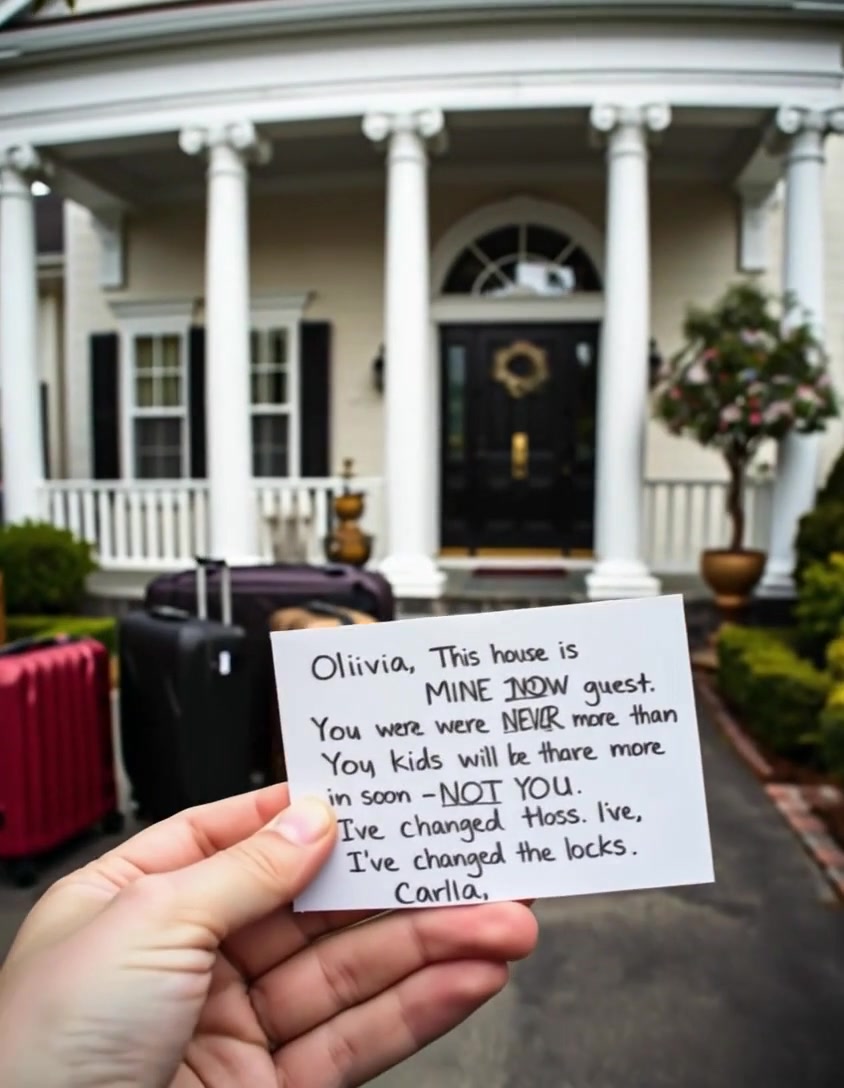 Oliivia, This house is
MINE NOW guest.
You were were NEVER more than
You kids will be thare more
in soon – NOT YOU.
I've changed tloss. I've,
I've changed the locks.
Carlla,